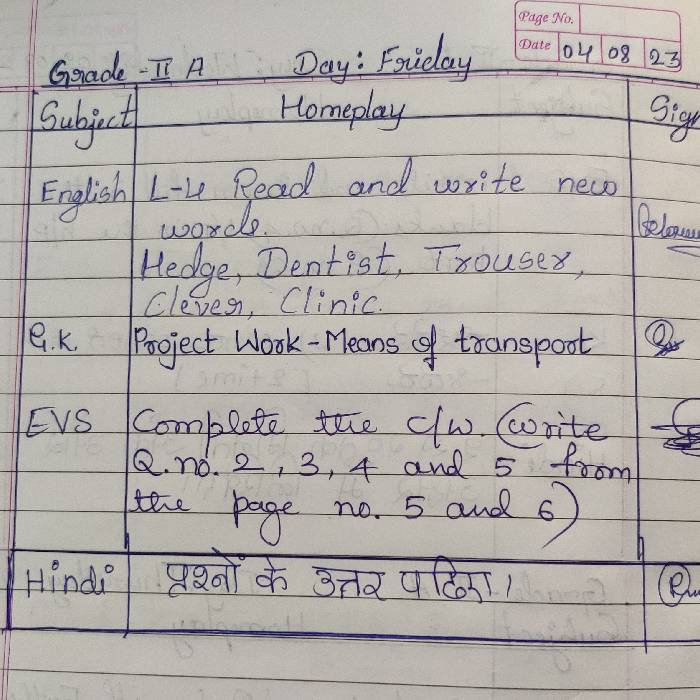 Page No.
Date 04 08 23
Grade - II A Day: Friday
Subject Homeplay Sign
English L-4 Read and write new
words.
Hedge, Dentist, Trouser,
Clever, Clinic.
G.K. Project Work - Means of transport
EVS Complete the c/w. (write
Q. no. 2, 3, 4 and 5 from
the page no. 5 and 6)
Hindi प्रश्नों के उत्तर पढिए।